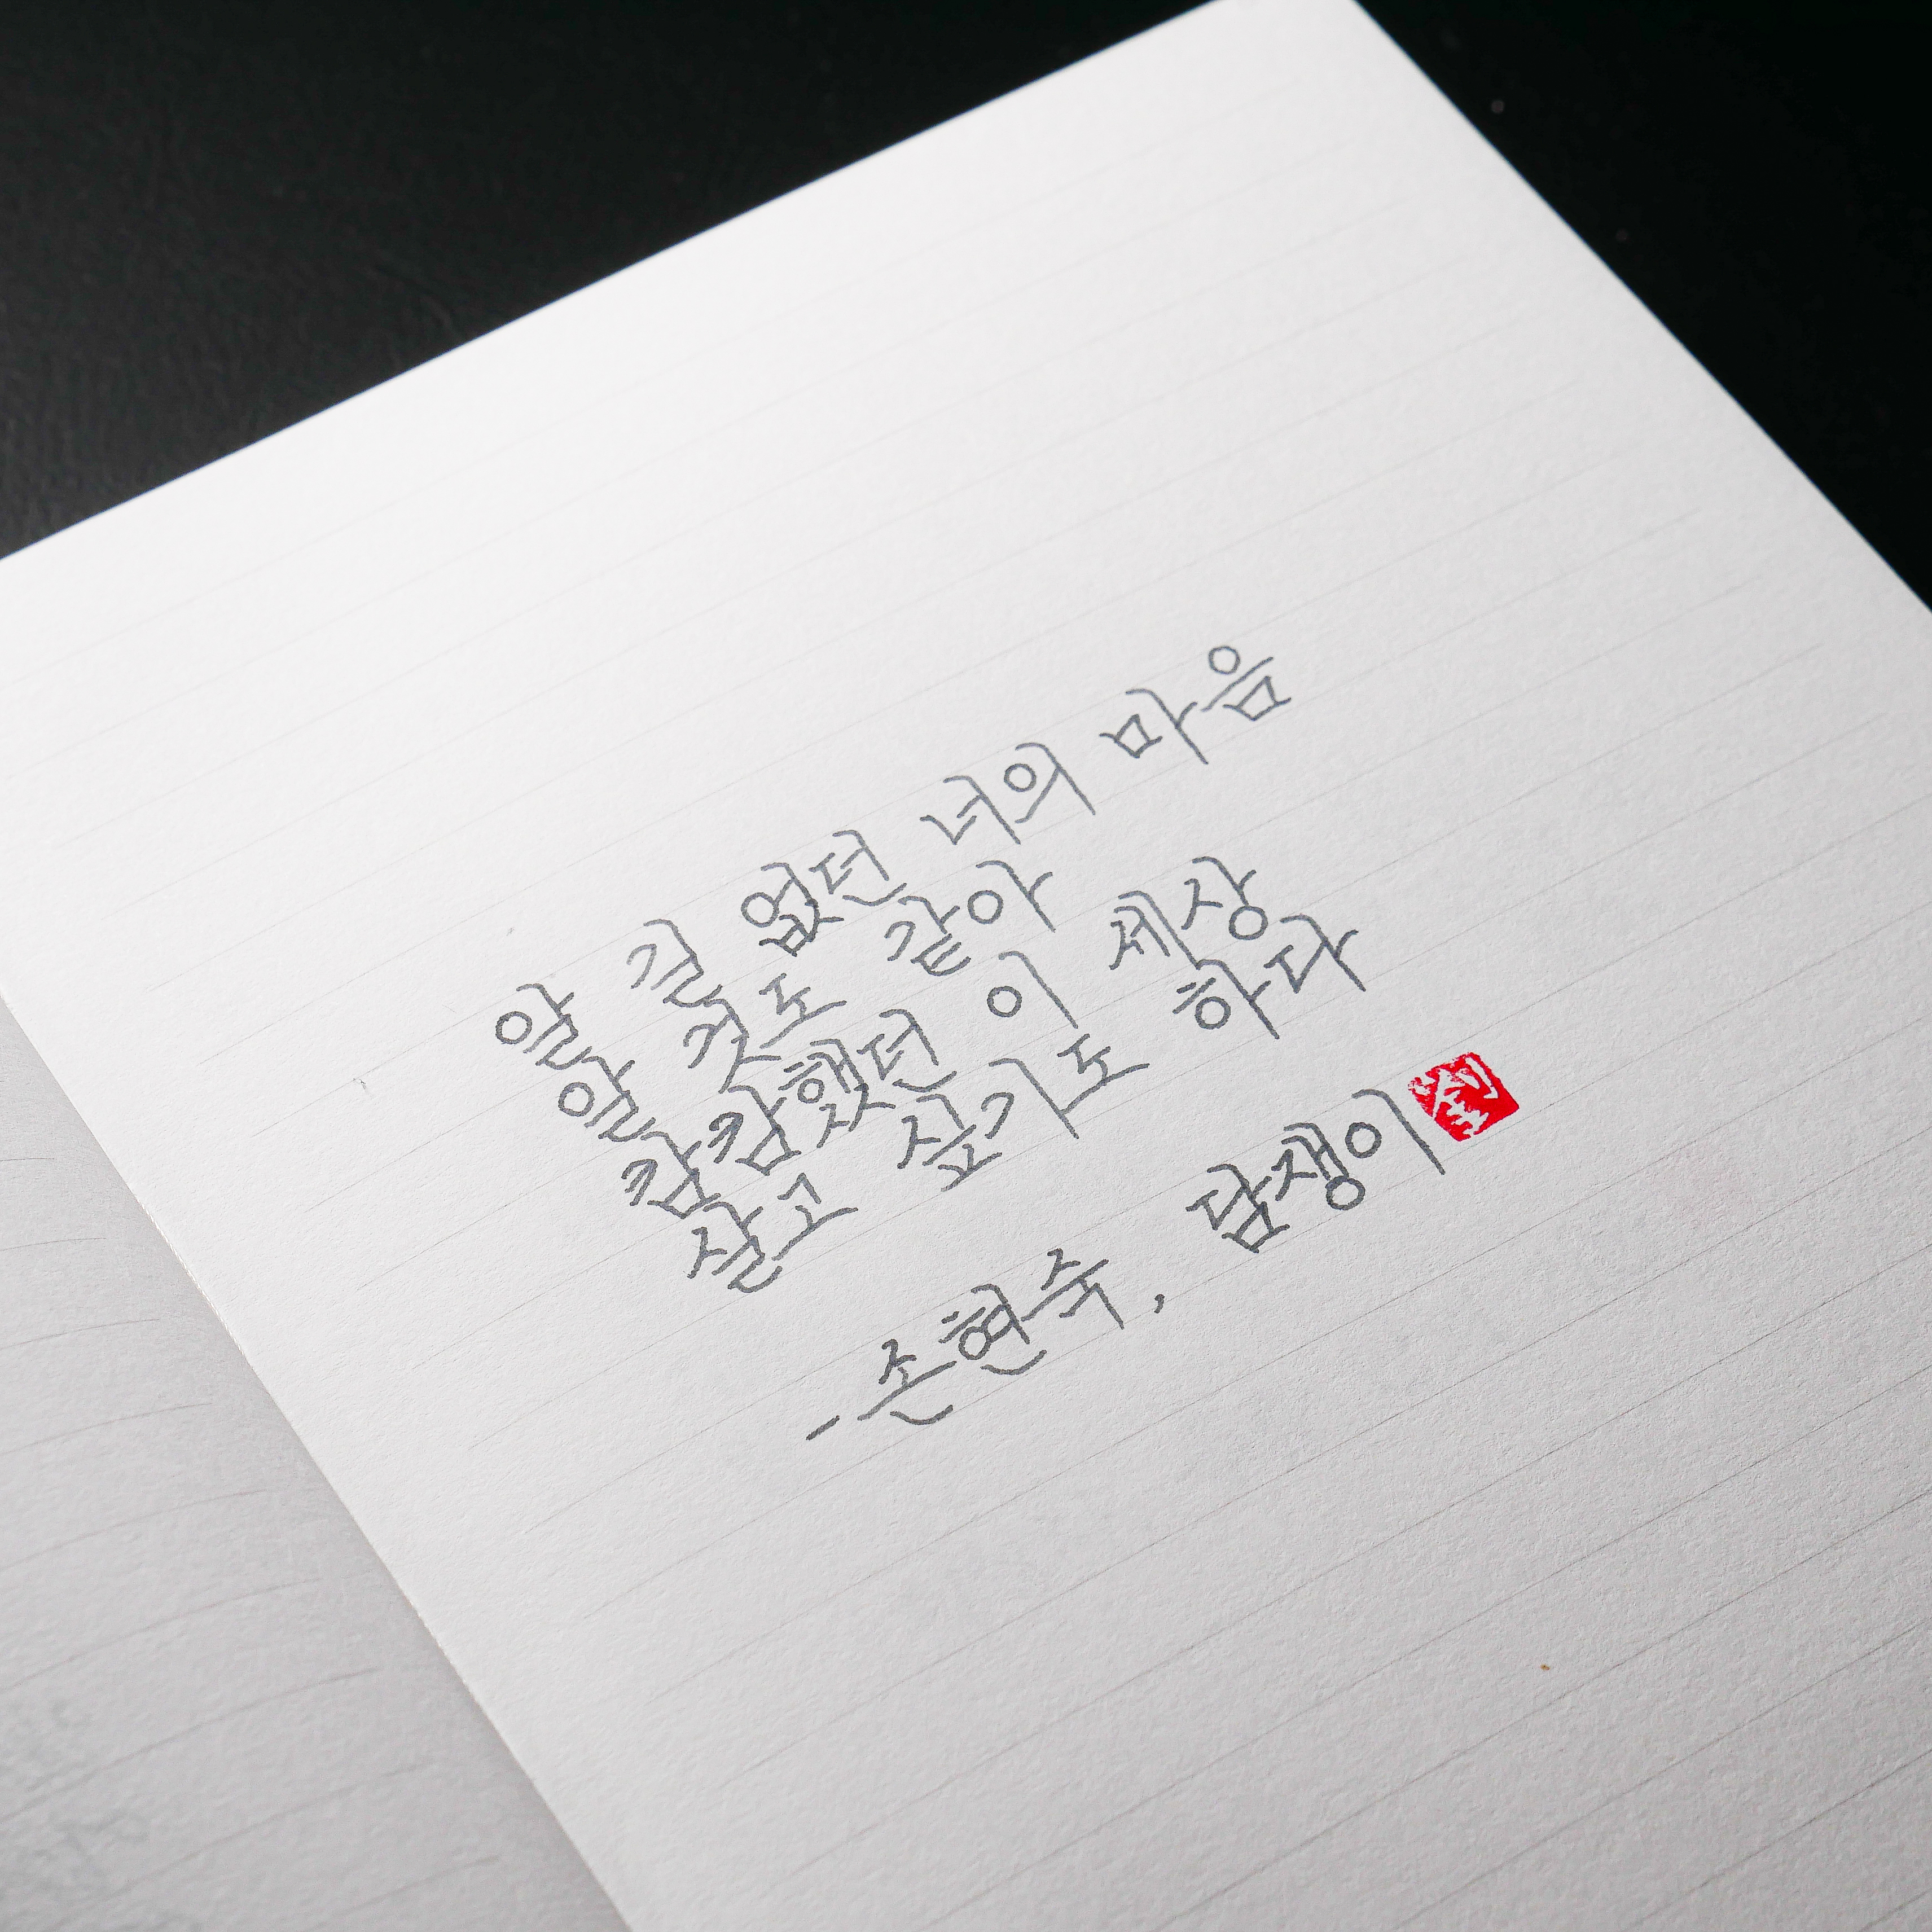 알 길 없던 너의 마음
알 것도 같아
캄캄했던 이 세상
살고 싶기도 하다
- 손현숙, 담쟁이